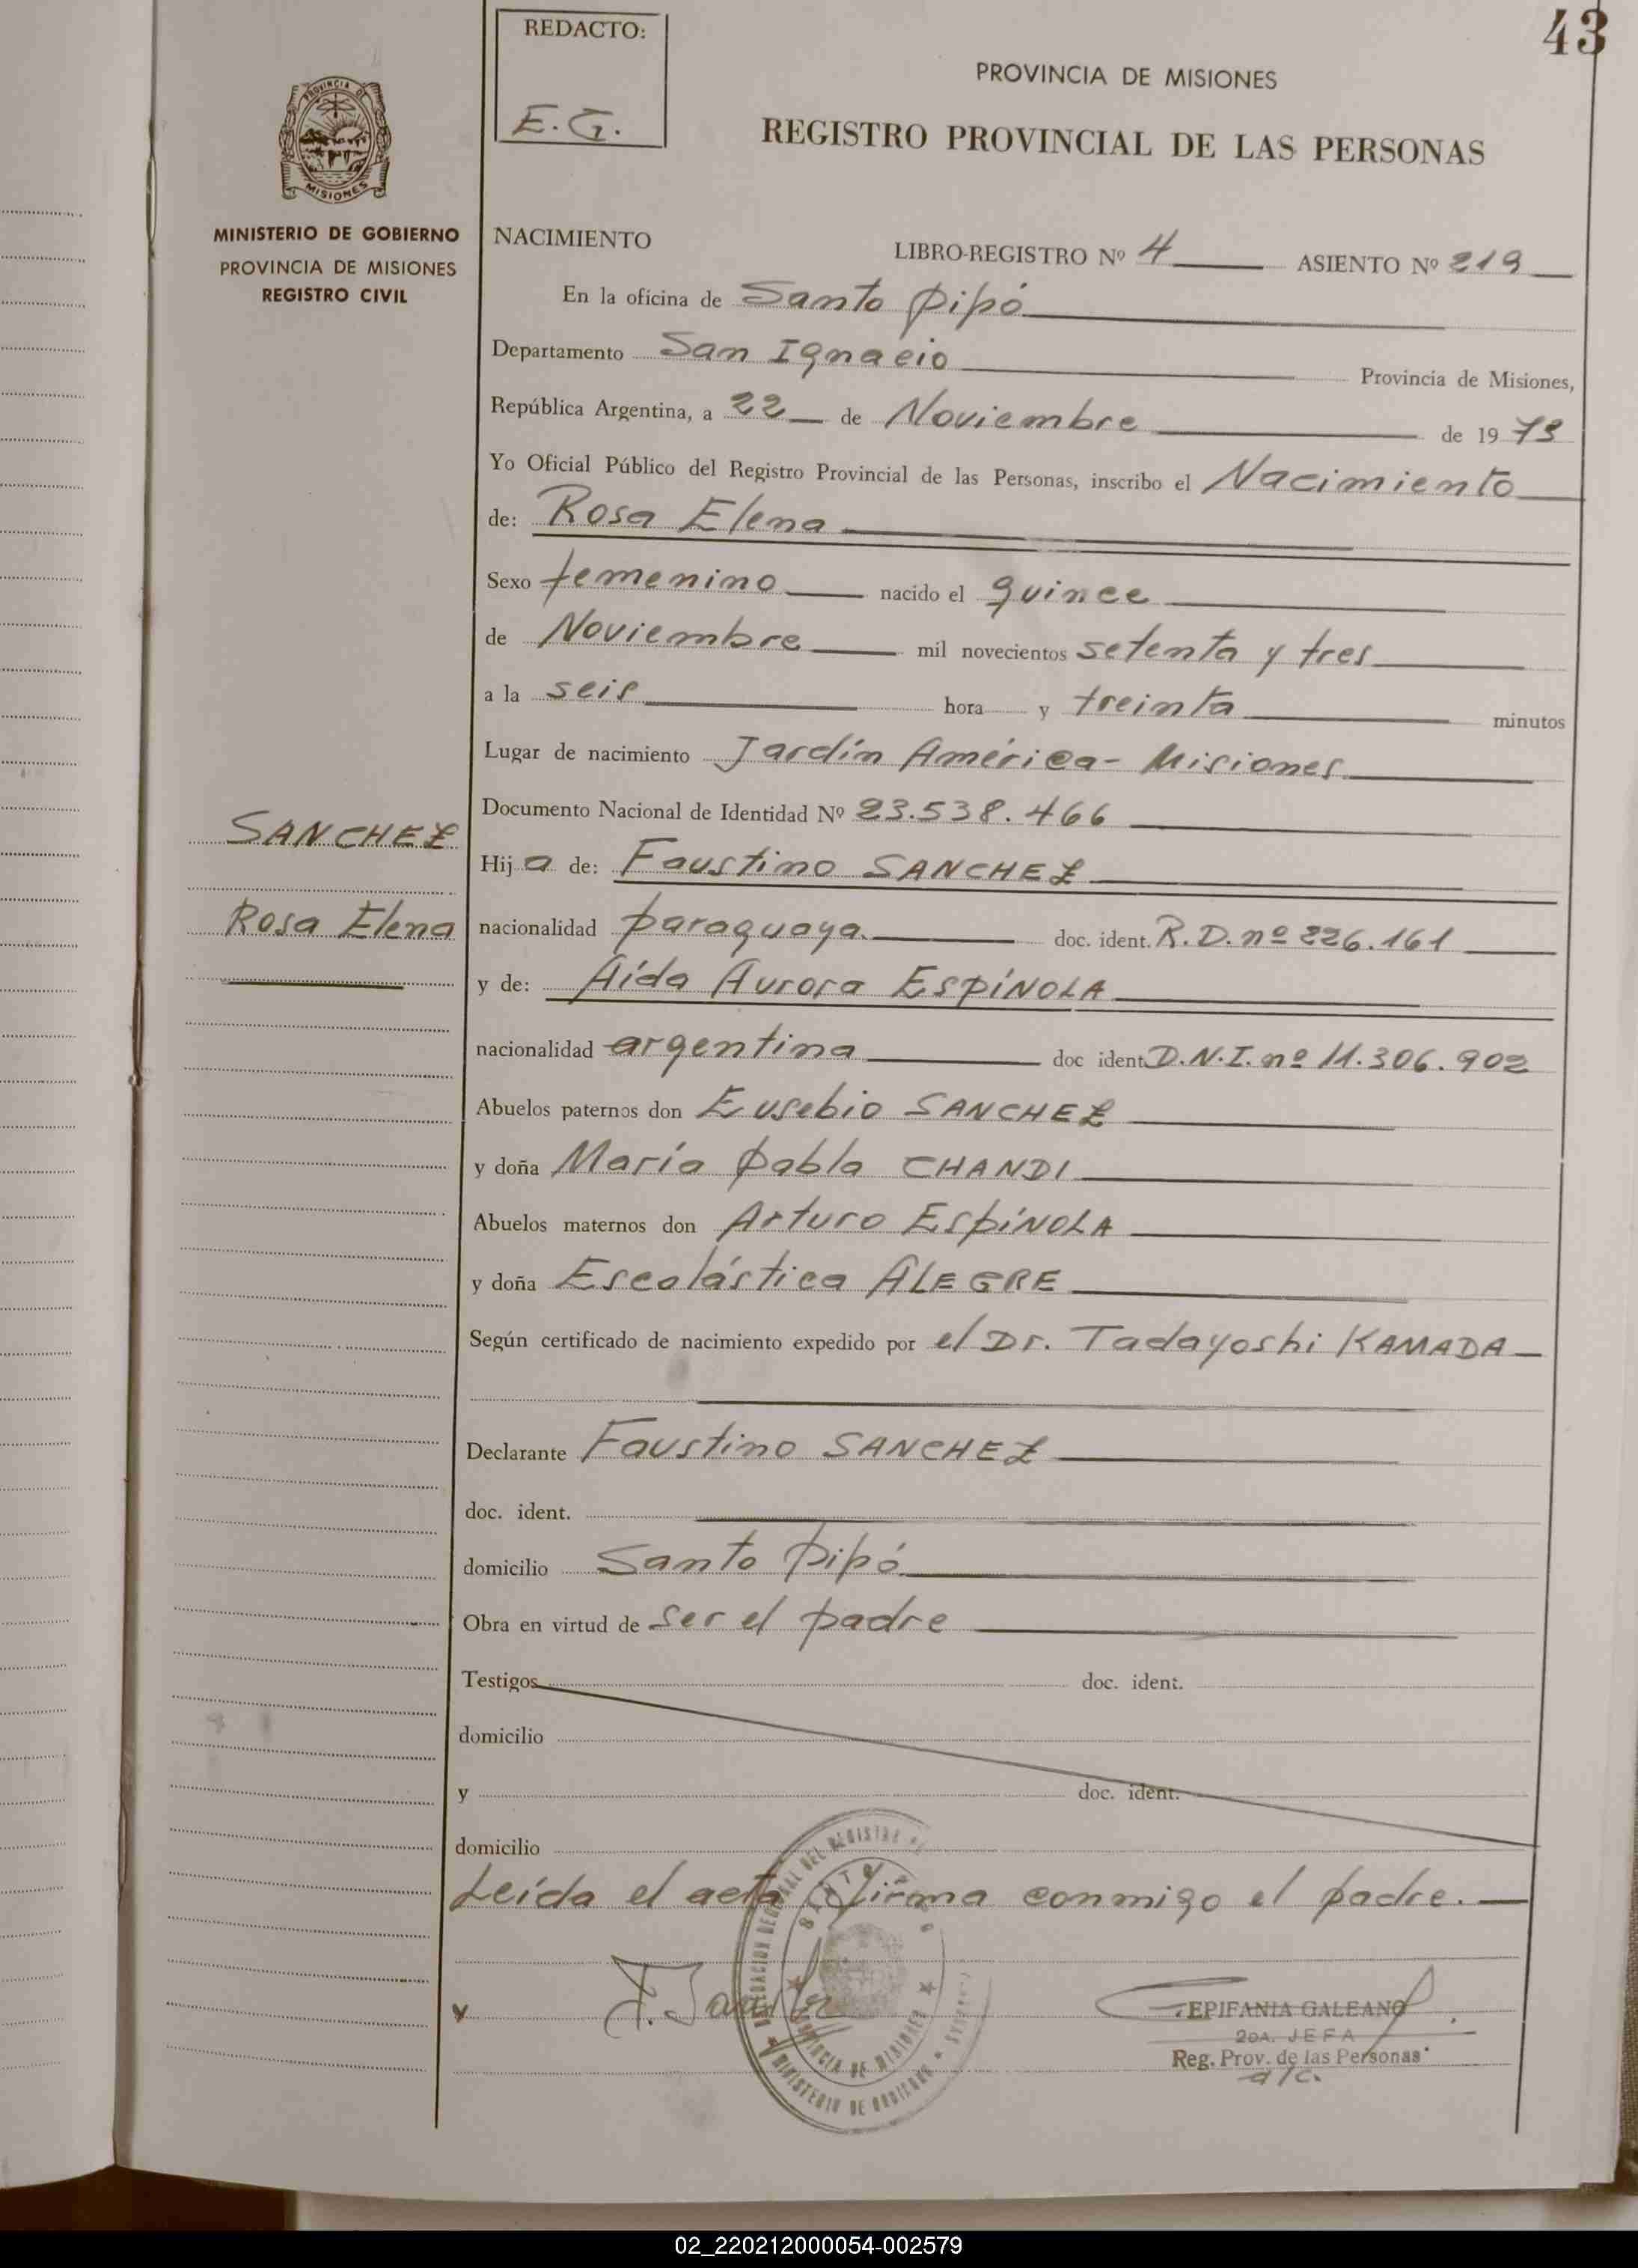 43
REDACTO:
E.G.
PROVINCIA DE MISIONES
REGISTRO PROVINCIAL DE LAS PERSONAS
PROVINCIA DE
MISIONES
MINISTERIO DE GOBIERNO
PROVINCIA DE MISIONES
REGISTRO CIVIL
NACIMIENTO LIBRO-REGISTRO Nº 4 ASIENTO Nº 219
En la oficina de Santo Pipó
Departamento San Ignacio Provincia de Misiones,
República Argentina, a 22 de Noviembre de 1973
Yo Oficial Público del Registro Provincial de las Personas, inscribo el Nacimiento
de: Rosa Elena
Sexo femenino nacido el quince
de Noviembre mil novecientos setenta y tres
a la seis hora y treinta minutos
Lugar de nacimiento Jardín América - Misiones
Documento Nacional de Identidad Nº 23.538.466
SANCHEZ
Hija de: Faustino SANCHEZ
Rosa Elena
nacionalidad paraguaya doc. ident. R.D. nº 226.161
y de: Aída Aurora ESPÍNOLA
nacionalidad argentina doc ident D.N.I. nº 11.306.902
Abuelos paternos don Eusebio SANCHEZ
y doña María Pabla CHANDI
Abuelos maternos don Arturo ESPÍNOLA
y doña Escolástica ALEGRE
Según certificado de nacimiento expedido por el Dr. Tadayoshi KAMADA
Declarante Faustino SANCHEZ
doc. ident.
domicilio Santo Pipó
Obra en virtud de ser el padre
Testigos doc. ident.
domicilio
y doc. ident.
domicilio
Leída el acta firma conmigo el padre.
F. Sanchez
DELEGACION DEL REGISTRO
SANTO
PROVINCIA DE MISIONES
MINISTERIO DE GOBIERNO
EPIFANIA GALEANO
2DA. JEFA
Reg. Prov. de las Personas
a/c.
02_220212000054-002579